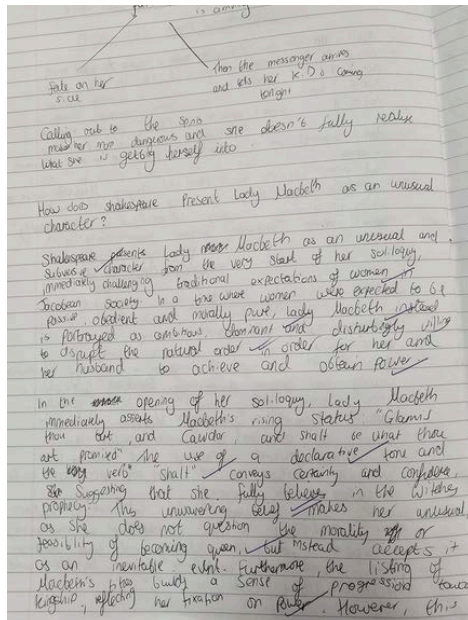 is
fate on her
side
then the messenger arrives
and tells her K.D. coming
tonight
Calling out to the
make her more dangerous and she doesn't fully realise
what she is getting herself into.
How does shakespeare Present Lady Macbeth as an unusual
character?
Shakespeare presents Lady Macbeth as an unusual and
subversive character from the very start of her soliloquy,
immediately challenging traditional expectations of women in
Jacobean society. In a time where women were expected to be
passive, obedient and morally pure, lady Macbeth instead
is portrayed as ambitious, dominant and disturbingly willing
to disrupt the natural order in order for her and
her husband to achieve and obtain power
In the opening of her soliloquy, Lady Macbeth
immediately asserts Macbeth's rising status "Glamis
thou art, and Cawdor, and shalt be what thou
art promised" The use of a declarative tone and
the verb "shalt" conveys certainty and confidence,
suggesting that she fully believes in the witches
prophecy. This unwavering belief makes her unusual
as she does not question the morality or
feasibility of becoming queen, but instead accepts it
as an inevitable event. Furthermore, the listing of
Macbeth's titles builds a sense of progression
kingship, reflecting her fixation on power. However, this